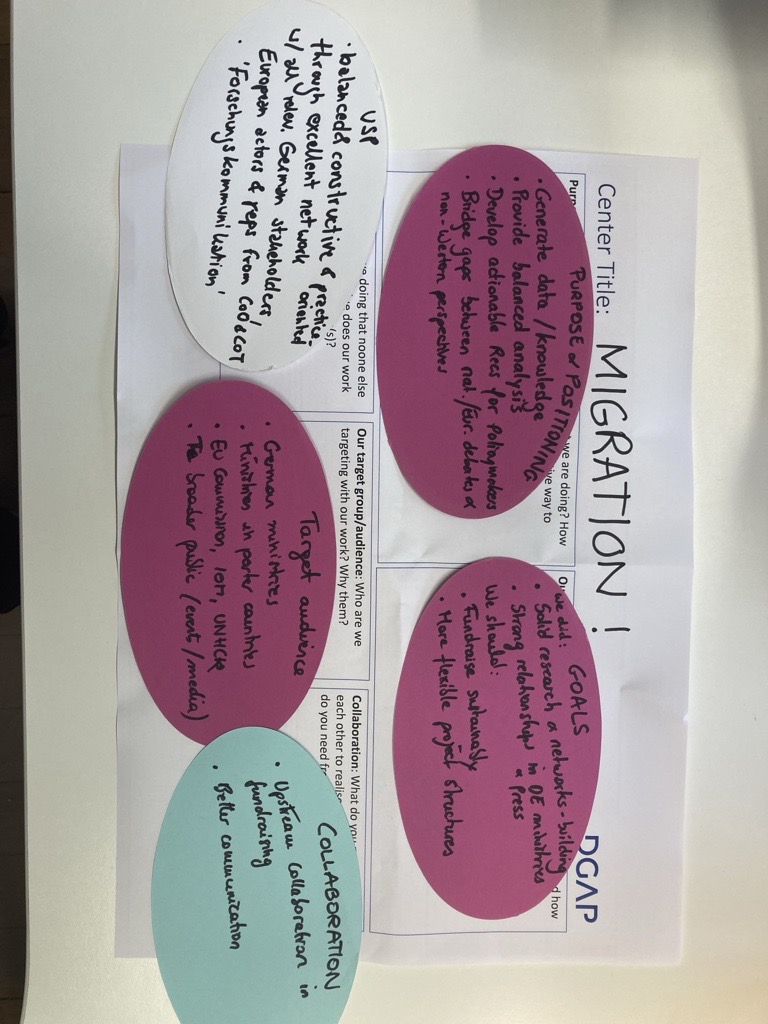 Center Title: MIGRATION !
DGAP
Purp
we are doing? How
ive way to
PURPOSE & POSITIONING
• Generate data / knowledge
• Provide balanced analysis
• Develop actionable Recs for Policymakers
• Bridge gaps between nat./Eur. debates &
non-Werton perspectives
Ou
d how
GOALS
we did:
• Solid research & networks-building
• Strong relationships in DE ministries
& Press
We should:
• Fundraise sustainably
• More flexible project structures
USP
• balanced & constructive & practice-
oriented
through excellent network
w/ all relev. German stakeholders/
European actors & reps from CoO & CoT
• 'Forschungskommunikation'
e doing that noone else
e does our work
(s)?
Our target group/audience: Who are we
targeting with our work? Why them?
Target audience
• German ministries
• Ministries in parter countries
• EU Commission, IOM, UNHCR
• The broader public (event / media)
Collaboration: What do you
each other to realise
do you need fr
COLLABORATION
• Upstream collaboration in
fundraising
• Better communication